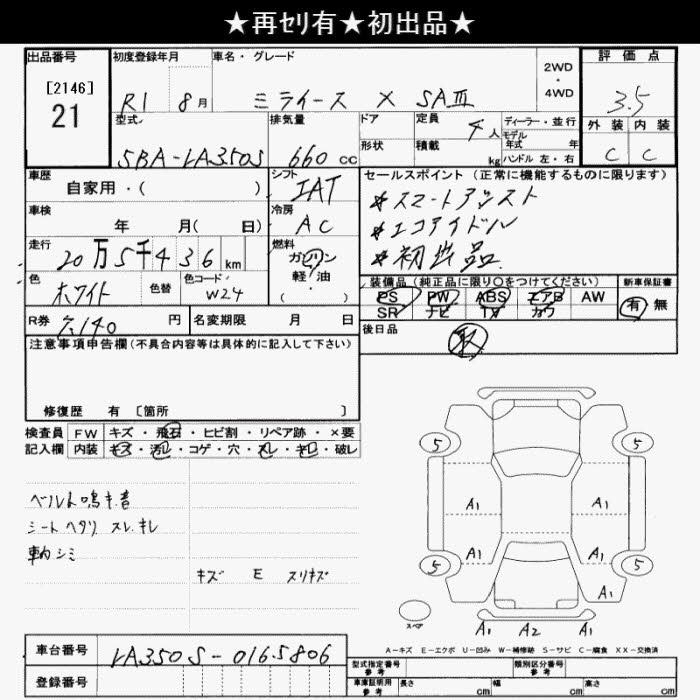 ★再セリ有★初出品★
出品番号 初度登録年月 車名・グレード 2WD・4WD 評価点
[2146]
21
R1 8月 ミライース X SAⅢ 3.5
型式 排気量 ドア 定員 4人 ディーラー・並行 外装 内装
モデル年式 年
5BA-LA350S 660cc 形状 積載 kg ハンドル 左・右 C C
車歴 シフト セールスポイント (正常に機能するものに限ります)
自家用・( ) IAT *スマートアシスト
車検 冷房 *エコアイドル
年 月(日) AC *初出品
走行 燃料
20万5千436km ガソリン
軽・油
・( )
色 色替 色コード 装備品(純正品に限り〇をつけてください) 新車保証書
ホワイト W24 PS PW ABS エアB AW 有 無
SR ナビ TV カワ
R券 7,140円 名変期限 月 日 後日品
取
注意事項申告欄(不具合内容等は具体的に記入して下さい)
修復歴 有 [箇所 ]
検査員 FW キズ・飛石・ヒビ割・リペア跡・×要
記入欄 内装 キズ・汚レ・コゲ・穴・スレ・キレ・破レ
5 5
ベルト鳴キ音
シートヘタリ スレ.キレ
車内シミ
キズ E スリキズ
A1 A1
A1 A1
5 5
A1
スペア
A1 A2 A1
A-キズ E-エクボ U-凹み W-補修跡 S-サビ C-腐食 XX-交換済
車台番号 LA350S-0165806
登録番号
型式指定番号 参考 類別区分番号 参考
車庫証明用 参考 長さ cm 幅 cm 高さ cm